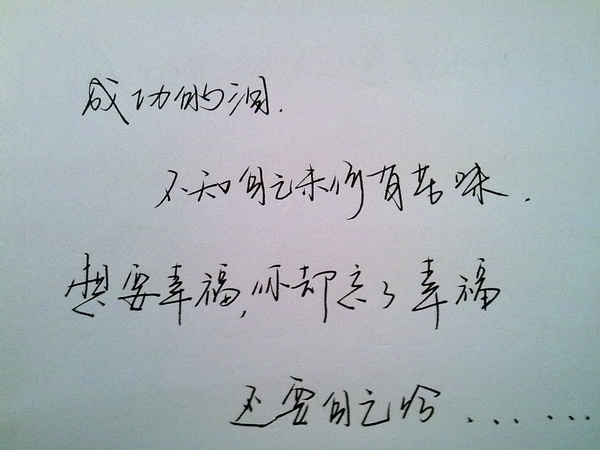 成功的泪.
不知自己来修有苦味.
想要幸福,你却忘了幸福
还要自己给......